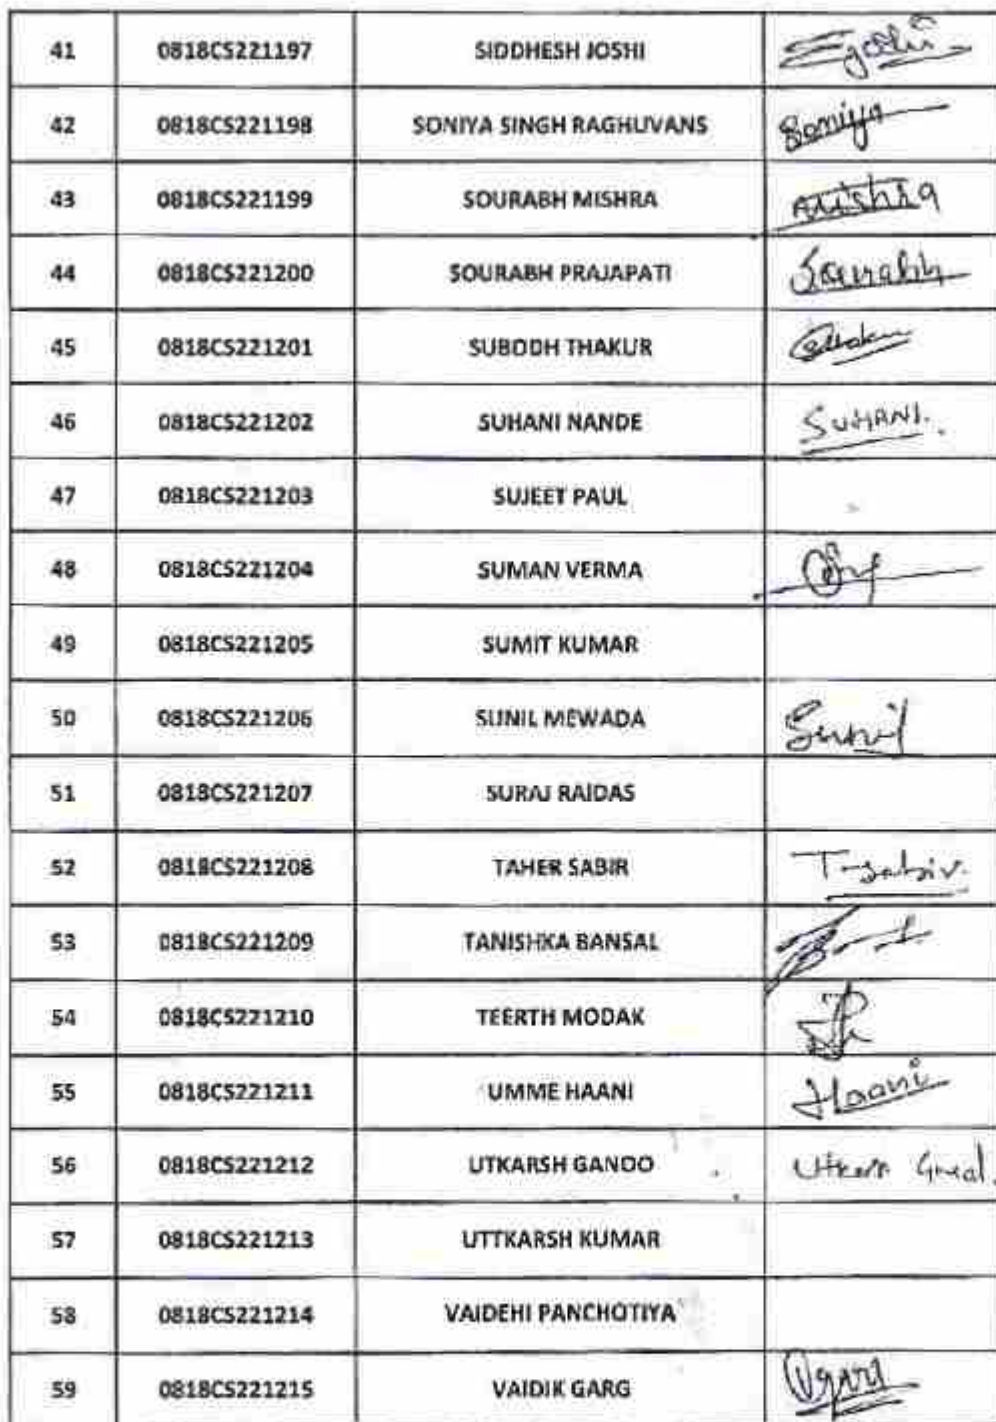 41 0818CS221197 SIDDHESH JOSHI
42 0818CS221198 SONIYA SINGH RAGHUVANS Soniya
43 0818CS221199 SOURABH MISHRA Mishra
44 0818CS221200 SOURABH PRAJAPATI Sourabh
45 0818CS221201 SUBODH THAKUR
46 0818CS221202 SUHANI NANDE SUHANI.
47 0818CS221203 SUJEET PAUL
48 0818CS221204 SUMAN VERMA
49 0818CS221205 SUMIT KUMAR
50 0818CS221206 SUNIL MEWADA Sunil
51 0818CS221207 SURAJ RAIDAS
52 0818CS221208 TAHER SABIR T-sabir.
53 0818CS221209 TANISHKA BANSAL
54 0818CS221210 TEERTH MODAK
55 0818CS221211 UMME HAANI Haani
56 0818CS221212 UTKARSH GANDO
57 0818CS221213 UTTKARSH KUMAR
58 0818CS221214 VAIDEHI PANCHOTIYA
59 0818CS221215 VAIDIK GARG